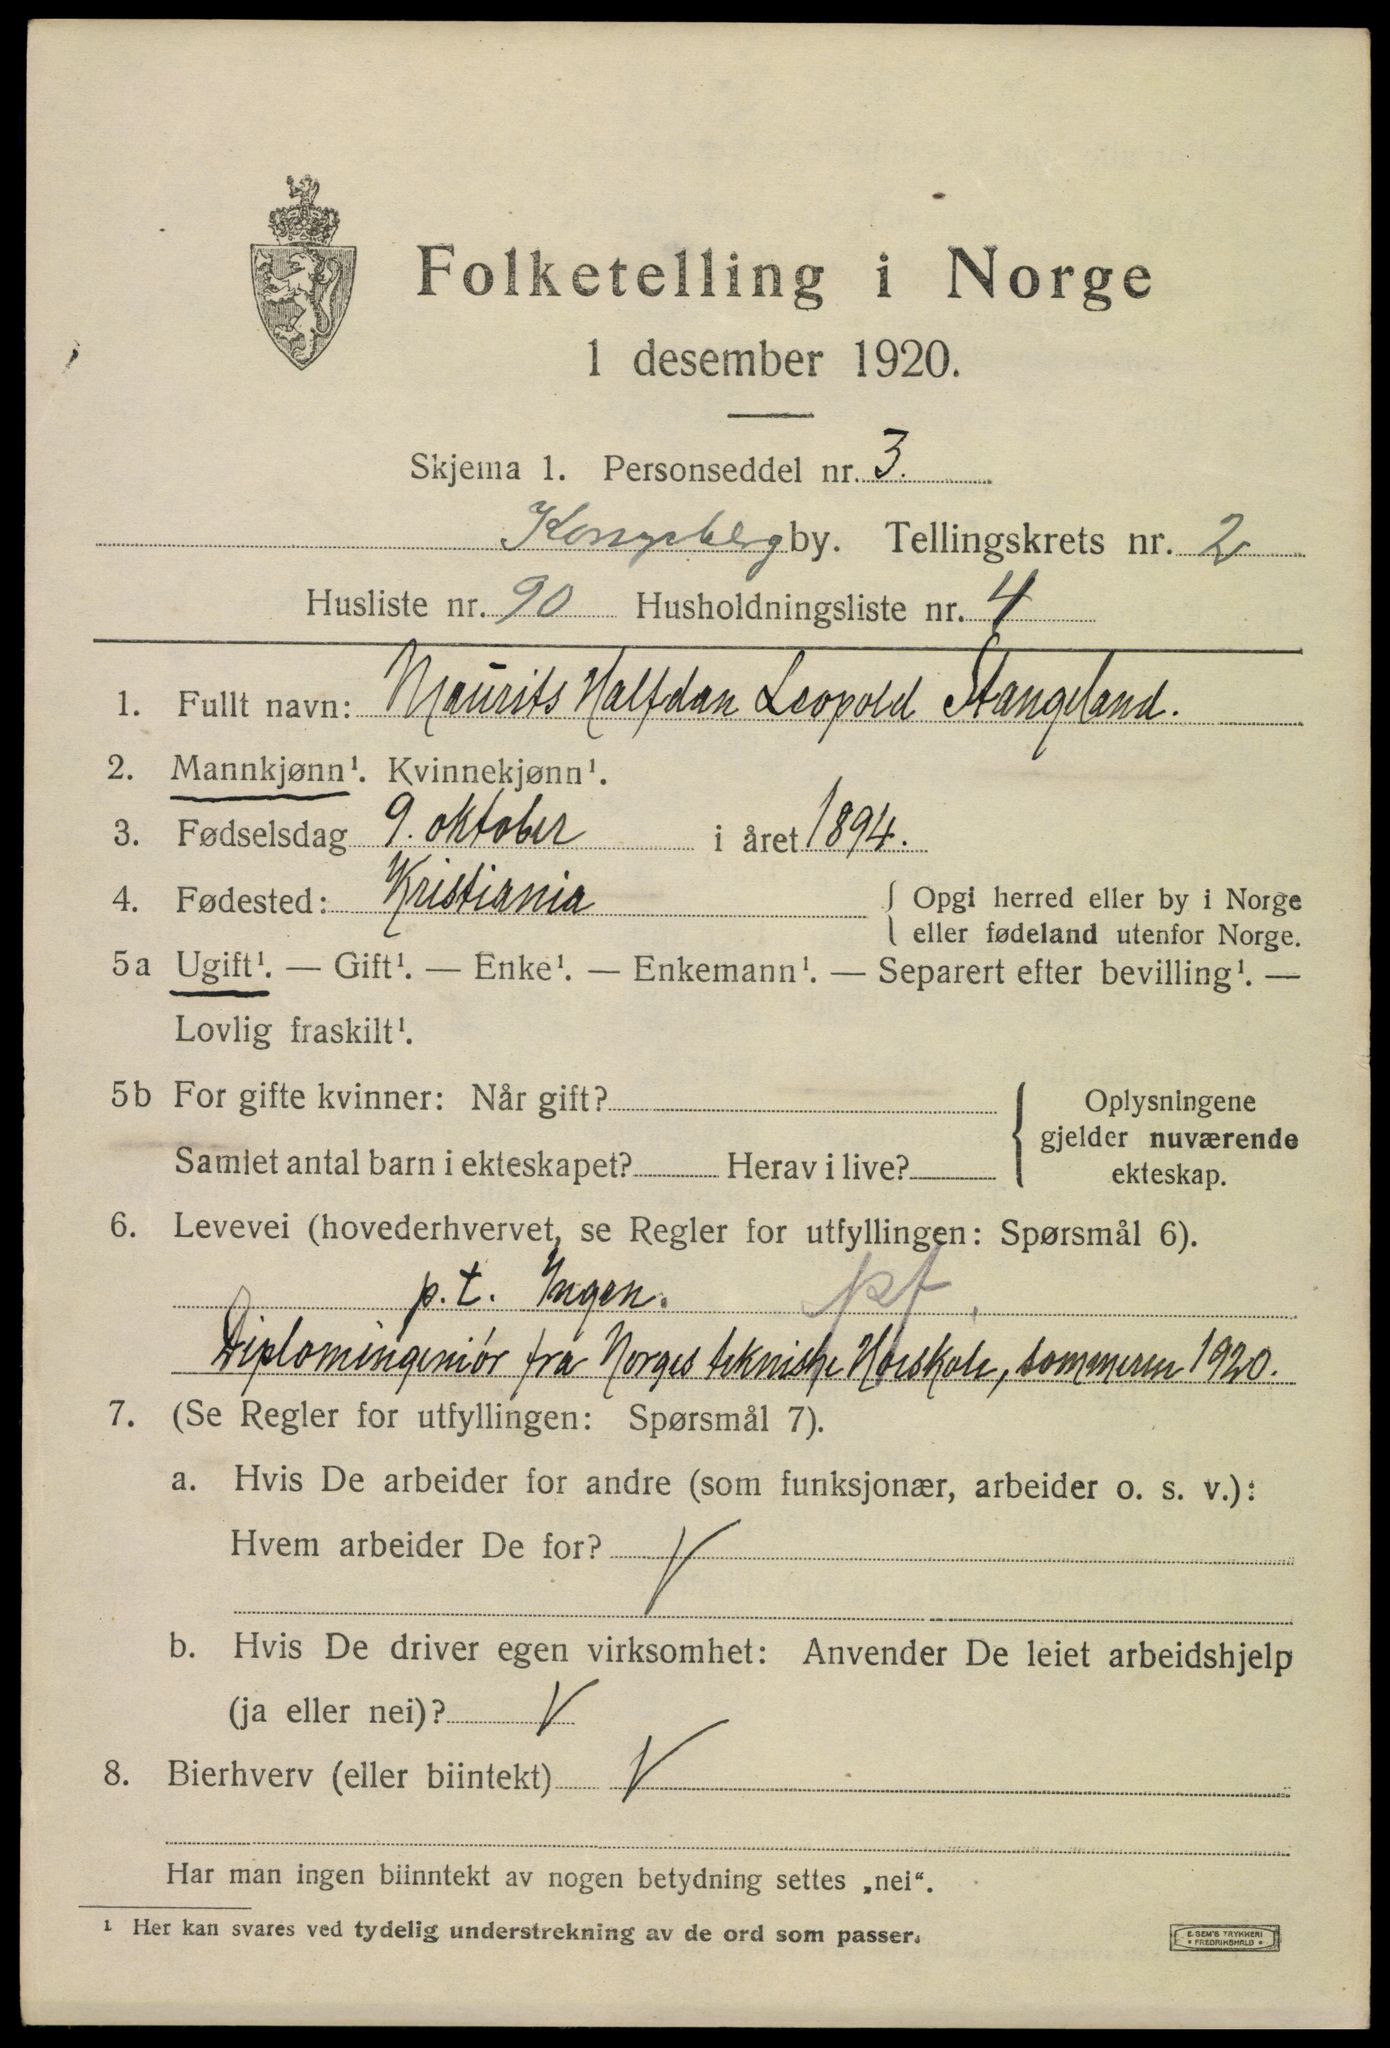 Folketelling i Norge
1 desember 1920.
Skjema 1. Personseddel nr. 3.
Kongsberg by. Tellingskrets nr. 2
Husliste nr. 90 Husholdningsliste nr. 4
1. Fullt navn: Maurits Halfdan Leopold Stangeland.
2. Mannkjønn¹. Kvinnekjønn¹.
3. Fødselsdag 9. oktober i året 1894.
4. Fødested: Kristiania { Opgi herred eller by i Norge
eller fødeland utenfor Norge.
5a Ugift¹. — Gift¹. — Enke¹. — Enkemann¹. — Separert efter bevilling¹. —
Lovlig fraskilt¹.
5b For gifte kvinner: Når gift? { Oplysningene
gjelder nuværende
Samlet antal barn i ekteskapet? Herav i live? ekteskap.
6. Levevei (hovederhvervet, se Regler for utfyllingen: Spørsmål 6).
p.t. Ingen. pf.
Diplomingeniør fra Norges tekniske Høiskole, sommeren 1920.
7. (Se Regler for utfyllingen: Spørsmål 7).
a. Hvis De arbeider for andre (som funksjonær, arbeider o. s. v.):
Hvem arbeider De for?
b. Hvis De driver egen virksomhet: Anvender De leiet arbeidshjelp
(ja eller nei)?
8. Bierhverv (eller biintekt)
Har man ingen biinntekt av nogen betydning settes „nei“.
¹ Her kan svares ved tydelig understrekning av de ord som passer.
E. SEM'S TRYKKERI
• FREDRIKSHALD •